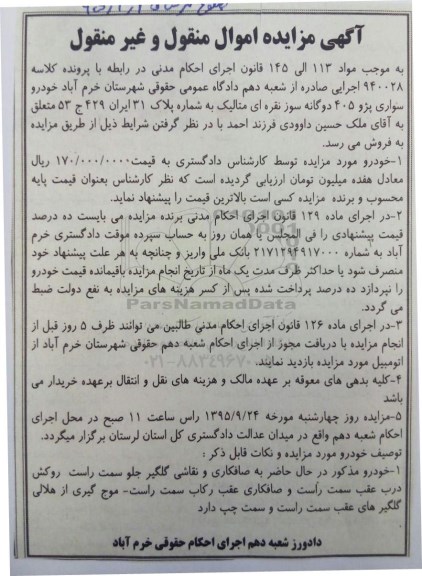 آگهی مزایده اموال منقول و غیر منقول
به موجب مواد ۱۱۳ الی ۱۴۵ قانون اجرای احکام مدنی در رابطه با پرونده کلاسه
۹۴۰۰۲۸ اجرایی صادره از شعبه دهم دادگاه عمومی حقوقی شهرستان خرم آباد خودرو
سواری پژو ۴۰۵ دوگانه سوز نقره ای متالیک به شماره پلاک ۳۱ ایران ۴۲۹ ج ۵۳ متعلق
به آقای ملک حسین داوودی فرزند احمد با در نظر گرفتن شرایط ذیل از طریق مزایده
به فروش می رسد.
۱-خودرو مورد مزایده توسط کارشناس دادگستری به قیمت۱۷۰/۰۰۰/۰۰۰۰ ریال
معادل هفده میلیون تومان ارزیابی گردیده است که نظر کارشناس بعنوان قیمت پایه
محسوب و برنده مزایده کسی است بالاترین قیمت را پیشنهاد نماید.
۲-در اجرای ماده ۱۲۹ قانون اجرای احکام مدنی برنده مزایده می بایست ده درصد
قیمت پیشنهادی را فی المجلس یا همان روز به حساب سپرده موقت دادگستری خرم
آباد به شماره ۲۱۷۱۲۹۴۹۱۷۰۰۰ بانک ملی واریز و چنانچه به هر علت پیشنهاد خود
منصرف شود یا حداکثر ظرف مدت یک ماه از تاریخ انجام مزایده باقیمانده قیمت خودرو
را نپردازد ده درصد پرداخت شده پس از کسر هزینه های مزایده به نفع دولت ضبط
می گردد.
۳-در اجرای ماده ۱۲۶ قانون اجرای احکام مدنی طالبین می توانند ظرف ۵ روز قبل از
انجام مزایده با دریافت مجوز از اجرای احکام شعبه دهم حقوقی شهرستان خرم آباد از
اتومبیل مورد مزایده بازدید نمایند.
۴-کلیه بدهی های معوقه بر عهده مالک و هزینه های نقل و انتقال برعهده خریدار می
باشد
۵-مزایده روز چهارشنبه مورخه ۱۳۹۵/۹/۲۴ راس ساعت ۱۱ صبح در محل اجرای
احکام شعبه دهم واقع در میدان عدالت دادگستری کل استان لرستان برگزار میگردد.
توصیف خودرو مورد مزایده و نکات قابل ذکر :
۱-خودرو مذکور در حال حاضر به صافکاری و نقاشی گلگیر جلو سمت راست روکش
درب عقب سمت راست و صافکاری عقب رکاب سمت راست- موج گیری از هلالی
گلگیر های عقب سمت راست و سمت چپ دارد
دادورز شعبه دهم اجرای احکام حقوقی خرم آباد
ParsNamadData
۰۲۱-۸۸۳۴۹۶۷۰